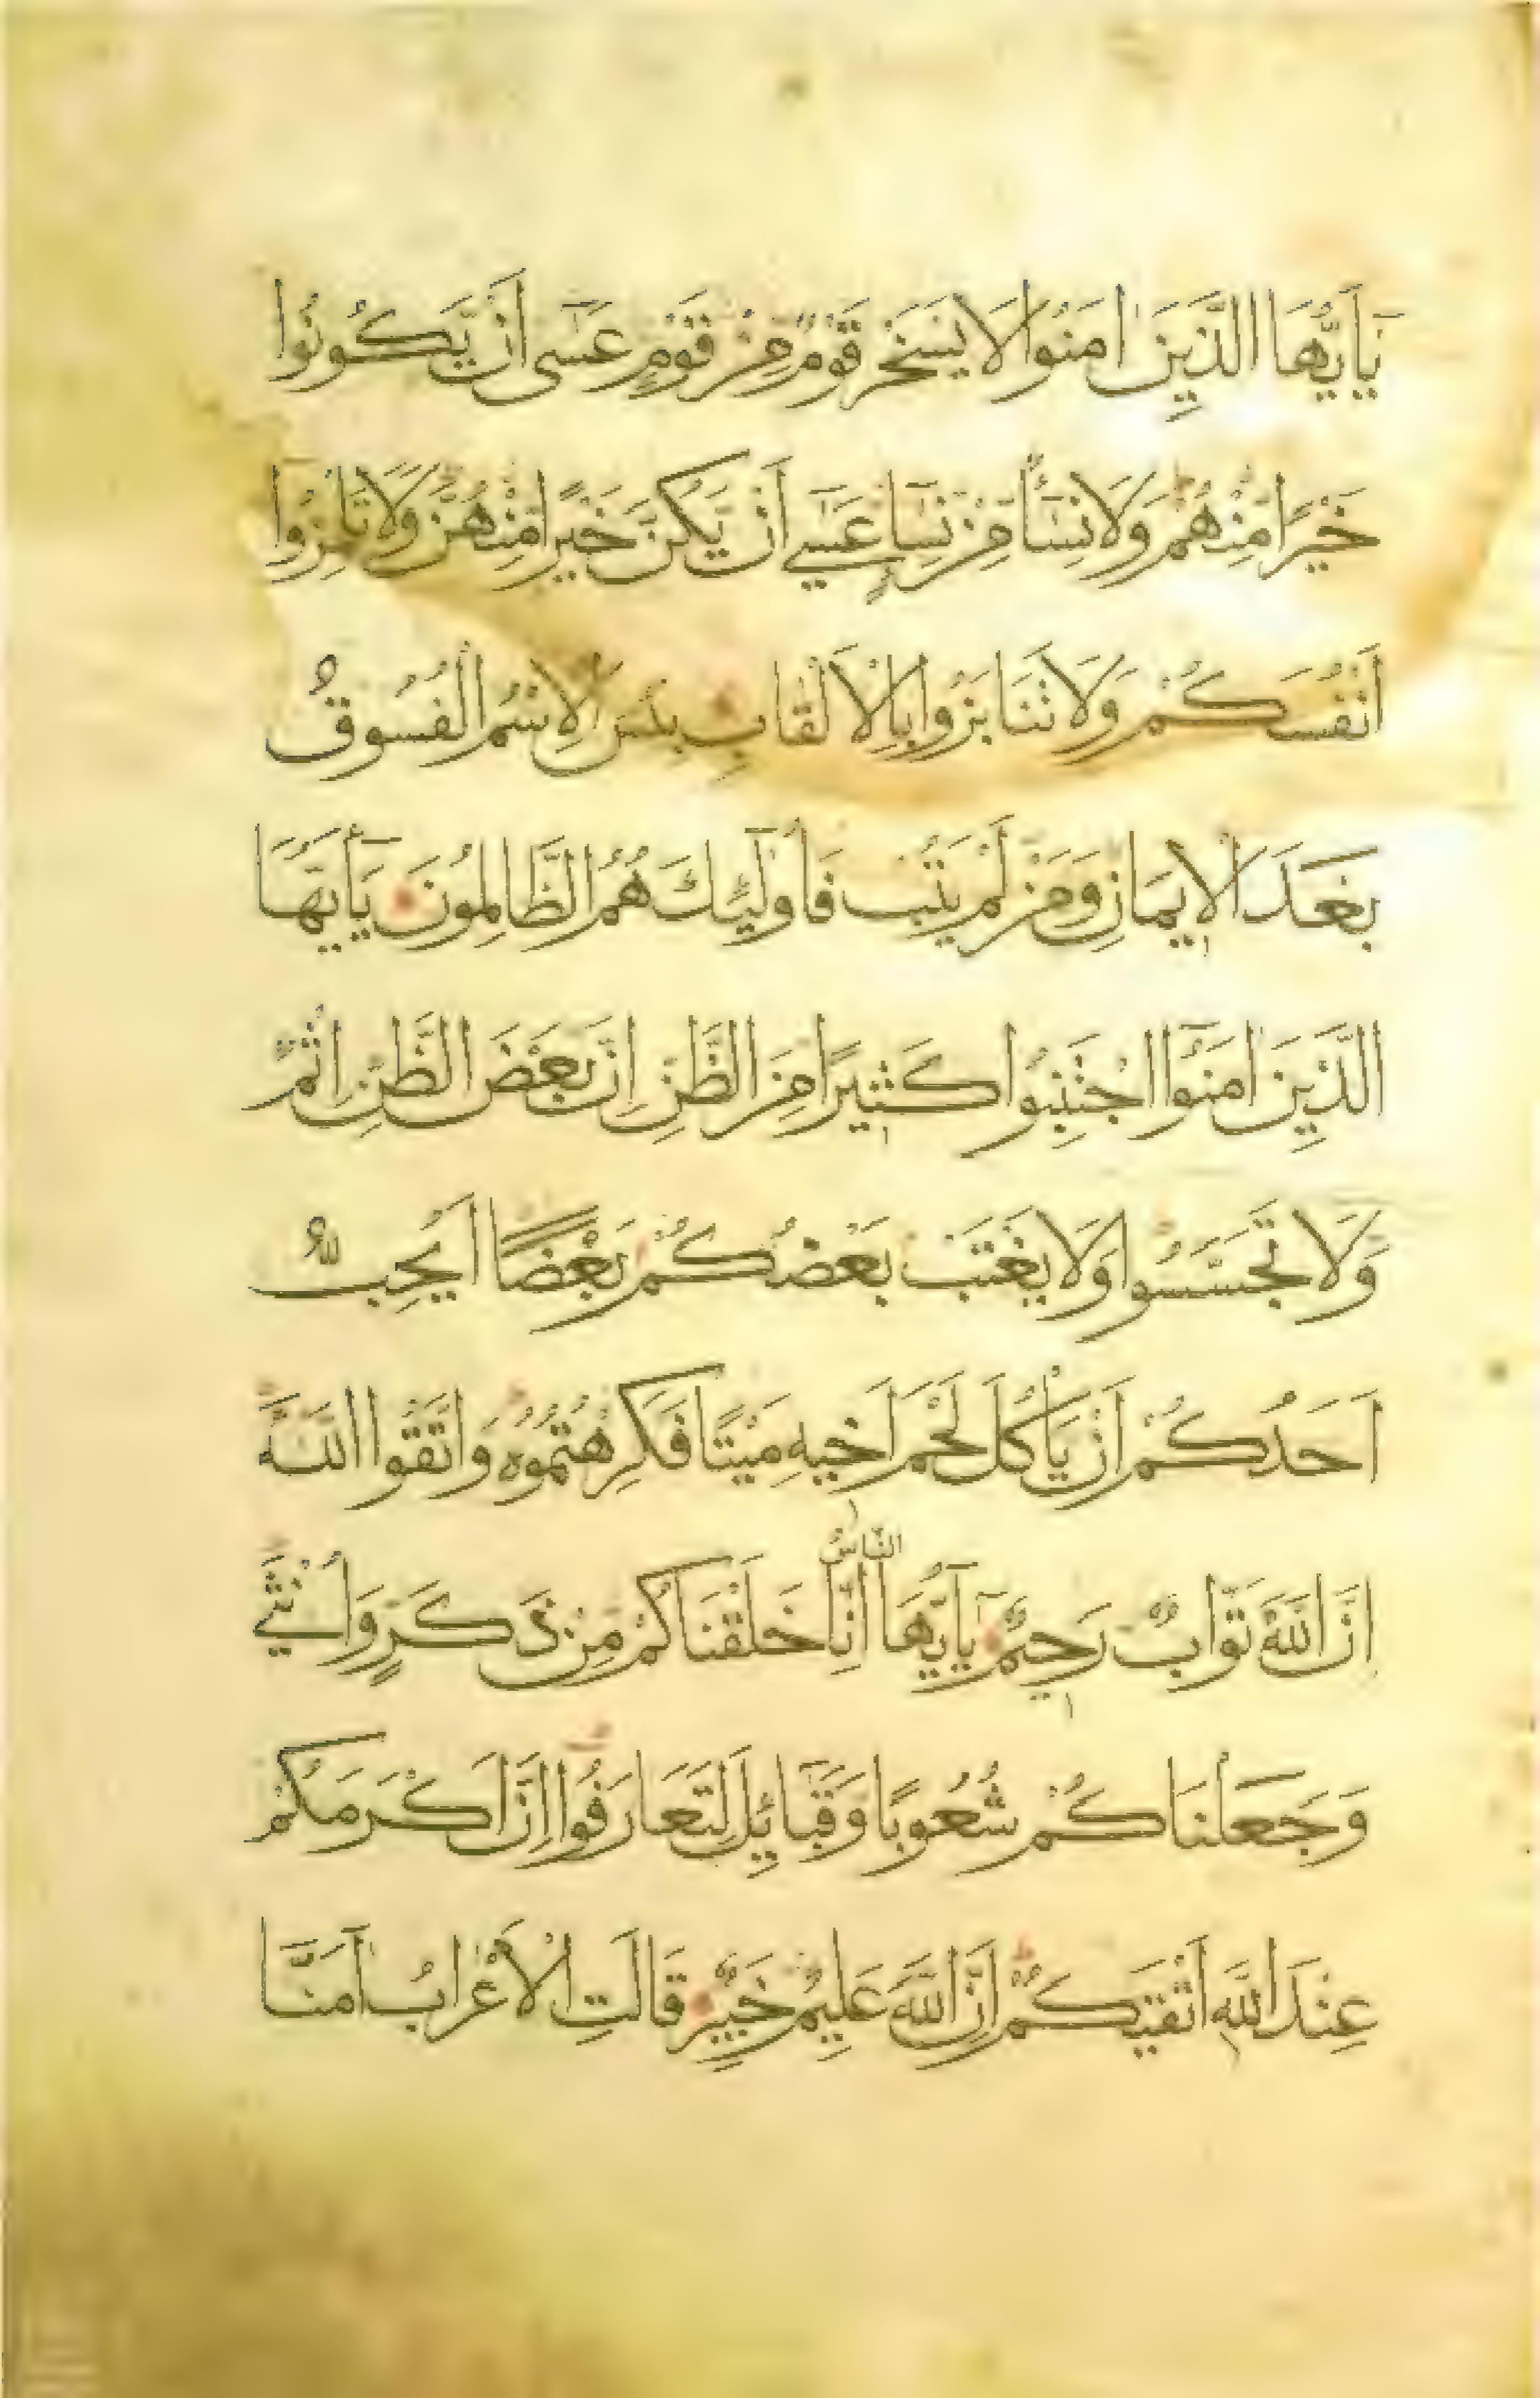 يَا أَيُّهَا الَّذِينَ اٰمَنُوا لَا يَسْخَرْ قَوْمٌ مِنْ قَوْمٍ عَسٰٓى اَنْ يَّكُونُوا
خَيْرًا مِنْهُمْ وَلَا نِسَاءٌ مِنْ نِسَاءٍ عَسٰٓى اَنْ يَّكُنَّ خَيْرًا مِنْهُنَّ وَلَا تَلْمِزُوا
اَنْفُسَكُمْ وَلَا تَنَابَزُوا بِالْاَلْقَابِ بِئْسَ الْاِسْمُ الْفُسُوقُ
بَعْدَ الْاِيمَانِ وَمَنْ لَمْ يَتُبْ فَاُولٰٓئِكَ هُمُ الظَّالِمُونَ يَا أَيُّهَا
الَّذِينَ اٰمَنُوا اجْتَنِبُوا كَثِيرًا مِنَ الظَّنِّ اِنَّ بَعْضَ الظَّنِّ اِثْمٌ
وَلَا تَجَسَّسُوا وَلَا يَغْتَبْ بَعْضُكُمْ بَعْضًا اَيُحِبُّ
اَحَدُكُمْ اَنْ يَاْكُلَ لَحْمَ اَخِيهِ مَيْتًا فَكَرِهْتُمُوهُ وَاتَّقُوا اللّٰهَ
اِنَّ اللّٰهَ تَوَّابٌ رَحِيمٌ يَا أَيُّهَا النَّاسُ اِنَّا خَلَقْنَاكُمْ مِنْ ذَكَرٍ وَاُنْثٰى
وَجَعَلْنَاكُمْ شُعُوبًا وَقَبَائِلَ لِتَعَارَفُوا اِنَّ اَكْرَمَكُمْ
عِنْدَ اللّٰهِ اَتْقٰيكُمْ اِنَّ اللّٰهَ عَلِيمٌ خَبِيرٌ قَالَتِ الْاَعْرَابُ اٰمَنَّا